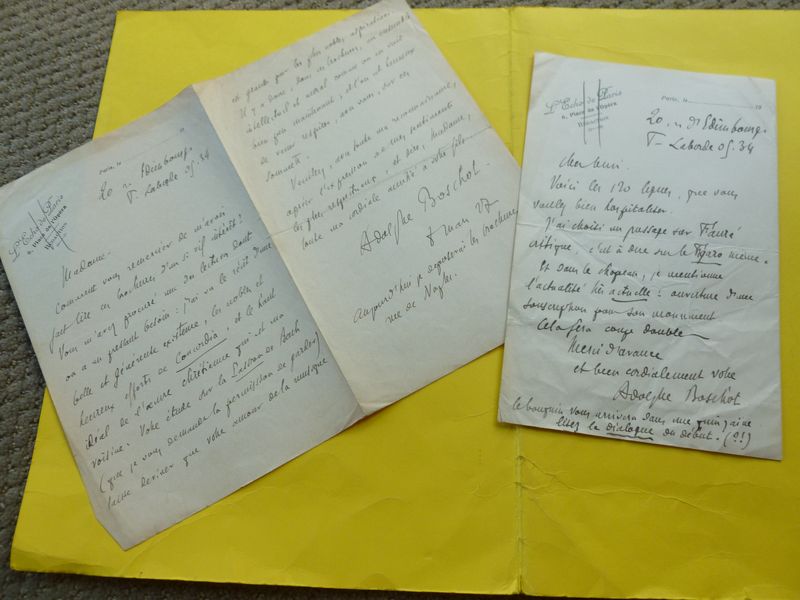 L'Echo de Paris
6, Place de l'Opéra
Paris, le 19
20 r. d'Edimbourg.
T- Laborde 05.34
Madame -
Comment vous remercier de m'avoir
fait lire ces brochures d'un si vif intérêt ?
Vous m'avez procuré une des lectures dont
on a un pressant besoin : j'ai vu le récit d'une
belle et généreuse existence, les nobles et
heureux efforts de Concordia, et le haut
idéal de l'œuvre chrétienne qui est ma
voisine. Votre étude sur la Passion de Bach
(que je vous demande la permission de garder)
laisse deviner que votre amour de la musique
est grandi par les plus nobles aspirations.
Il y a donc, dans ces brochures, un ensemble
intellectuel et moral comme on en voit
bien peu maintenant, et l'on est heureux
de vous respirer, avec vous, sur ces
sommets.
Veuillez, avec toute ma reconnaissance,
agréer l'expression de mes sentiments
les plus respectueux, et dire, Madame,
toute ma cordiale amitié à votre fils.
Adolphe Boschot.
8 mars 27
Aujourd'hui je déposerai les brochures
rue de Naples.
L'Echo de Paris
6, Place de l'Opéra
Paris, le 19
20, r. d'Edimbourg.
T- Laborde 05.34
Cher ami.
Voici les 120 lignes, que vous
voulez bien hospitaliser.
J'ai choisi un passage sur Fauré
critique, c'est à dire sur le Figaro même.
Et dans le chapeau, je mentionne
l'actualité très actuelle : ouverture d'une
souscription pour son monument
Cela fera coup double -
Merci d'avance
et bien cordialement vôtre
Adolphe Boschot
Le bouquin vous arrivera dans une quinzaine
lisez le dialogue du début. (?!)